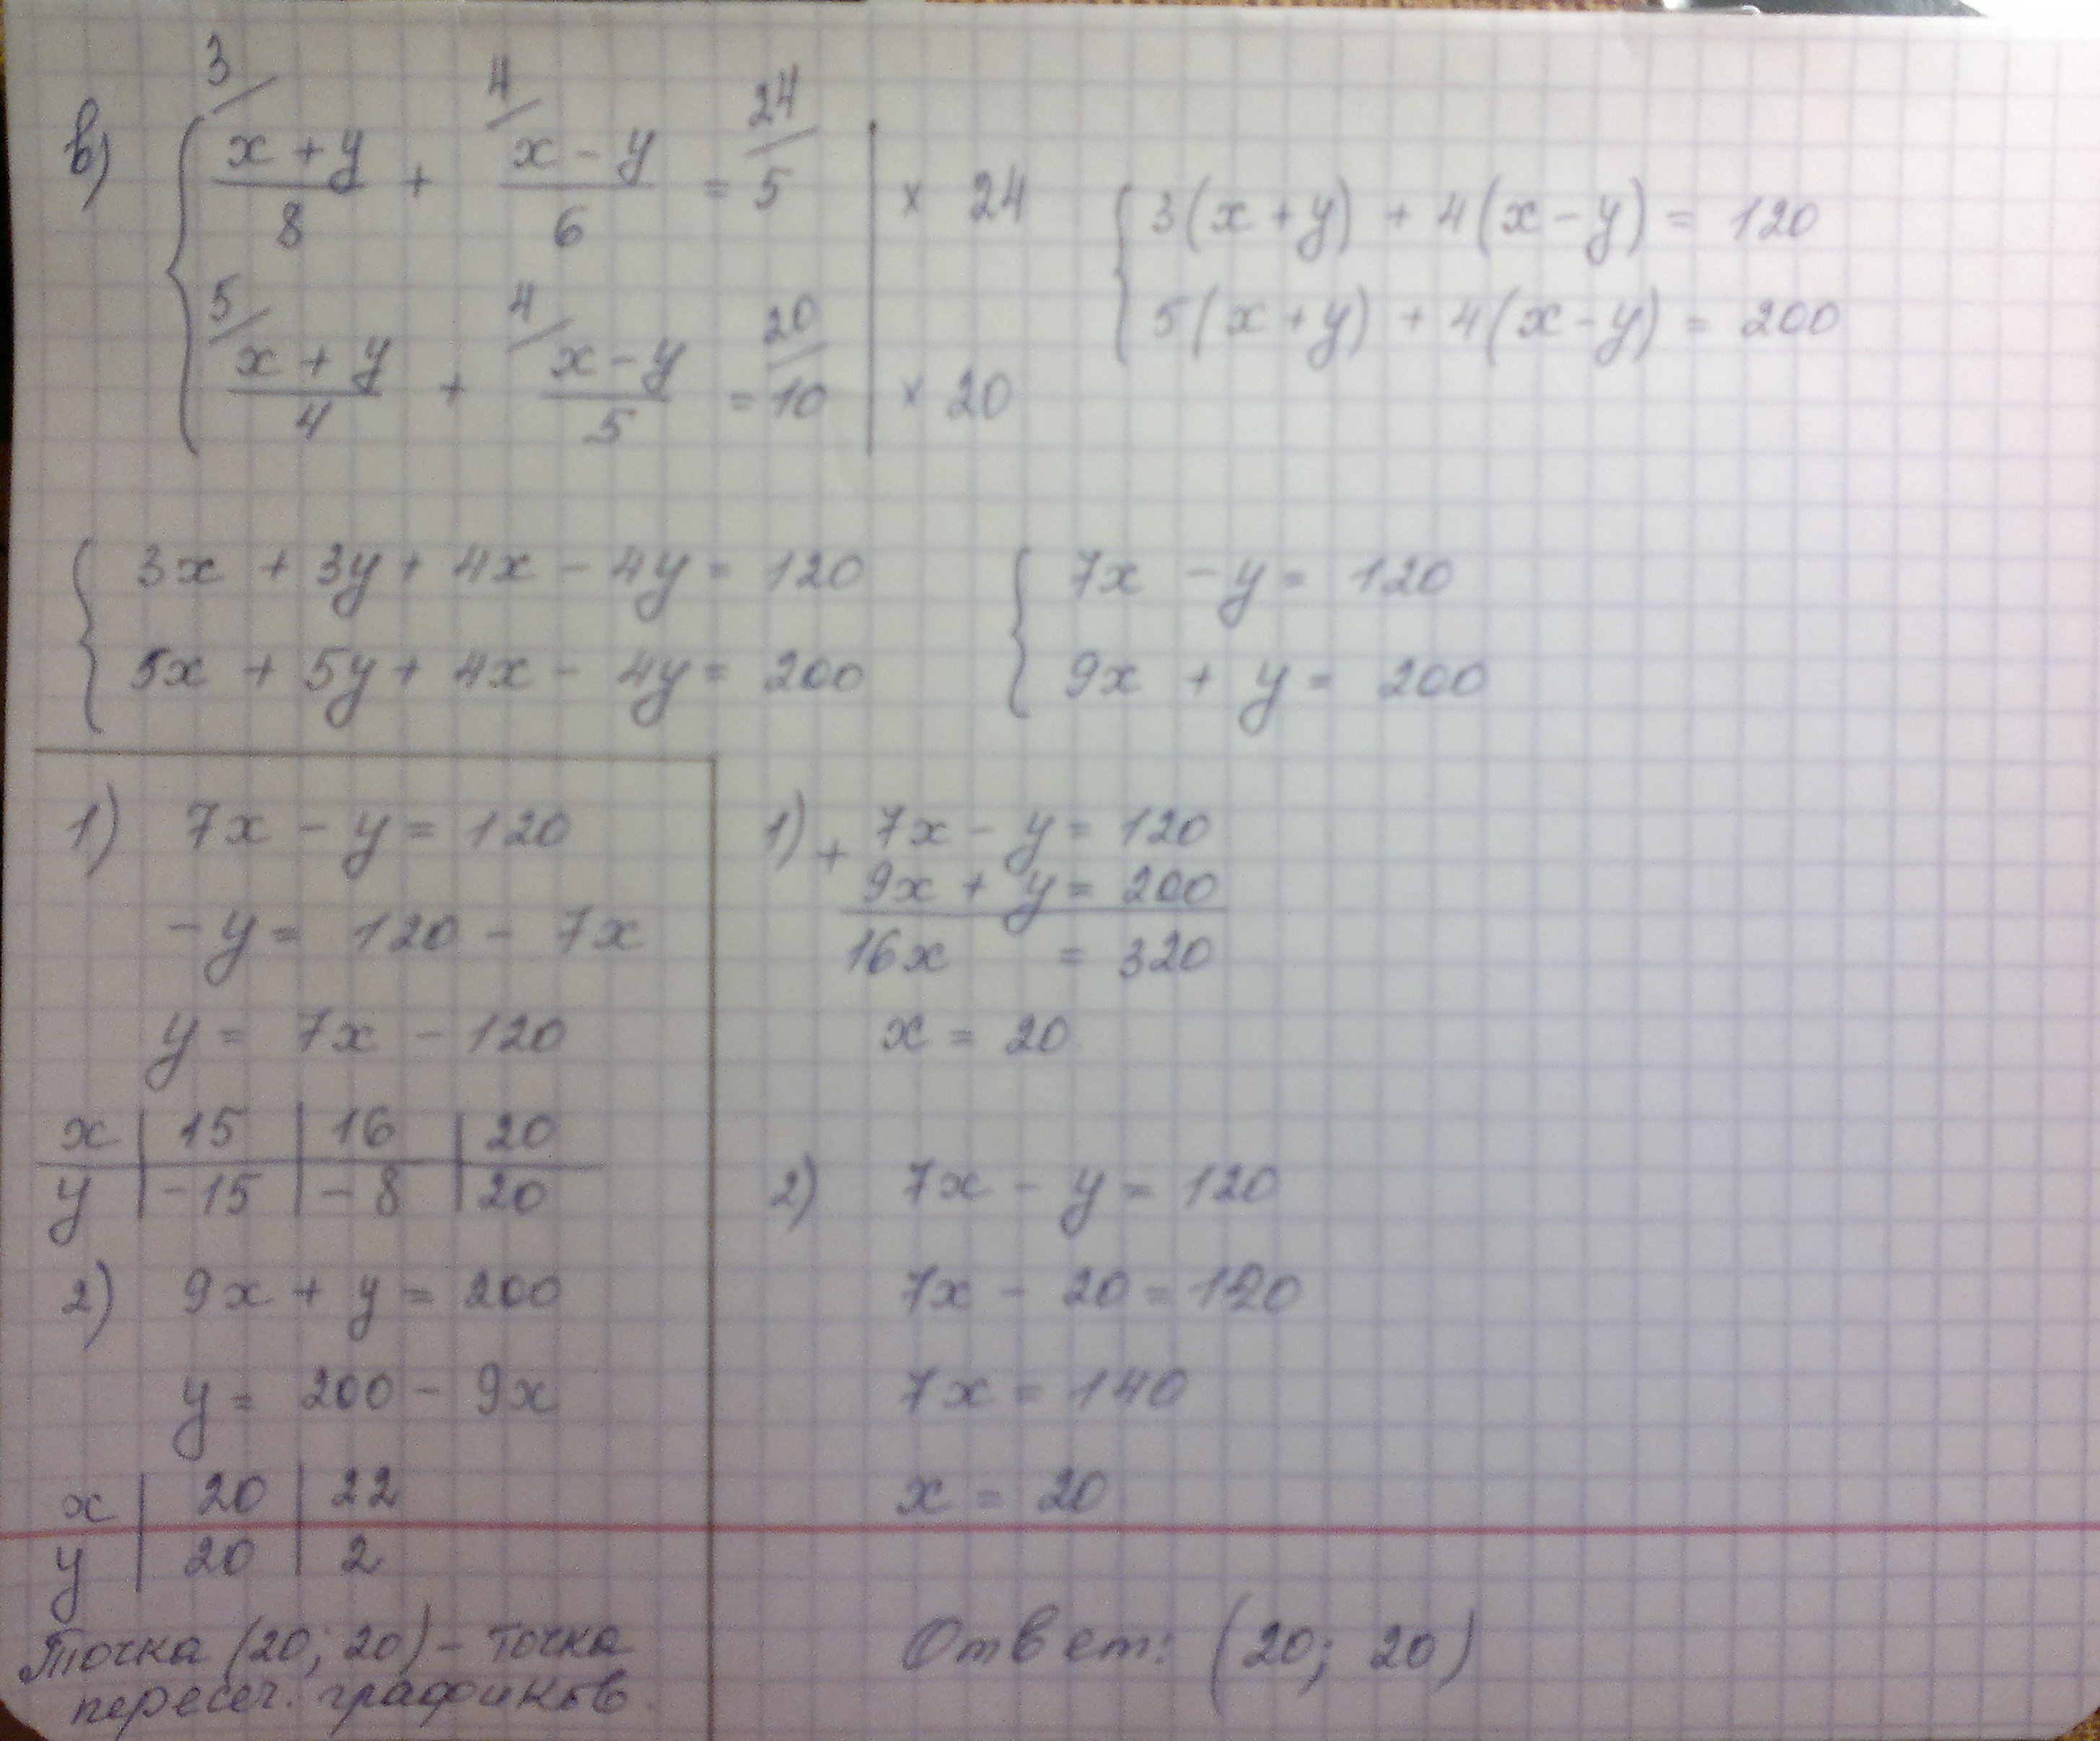 в) { 3/ (x + y)/8 + 4/ (x - y)/6 = 24/ 5 | × 24
{ 5/ (x + y)/4 + 4/ (x - y)/5 = 20/ 10 | × 20
{ 3(x + y) + 4(x - y) = 120
5(x + y) + 4(x - y) = 200
{ 3x + 3y + 4x - 4y = 120
5x + 5y + 4x - 4y = 200
{ 7x - y = 120
9x + y = 200
1) 7x - y = 120
-y = 120 - 7x
y = 7x - 120
x | 15 | 16 | 20
y | -15 | -8 | 20
2) 9x + y = 200
y = 200 - 9x
x | 20 | 22
y | 20 | 2
Точка (20; 20) - точка
пересеч. графиков.
1) + 7x - y = 120
9x + y = 200
16x = 320
x = 20
2) 7x - y = 120
7x - 20 = 120
7x = 140
x = 20
Ответ: (20; 20)